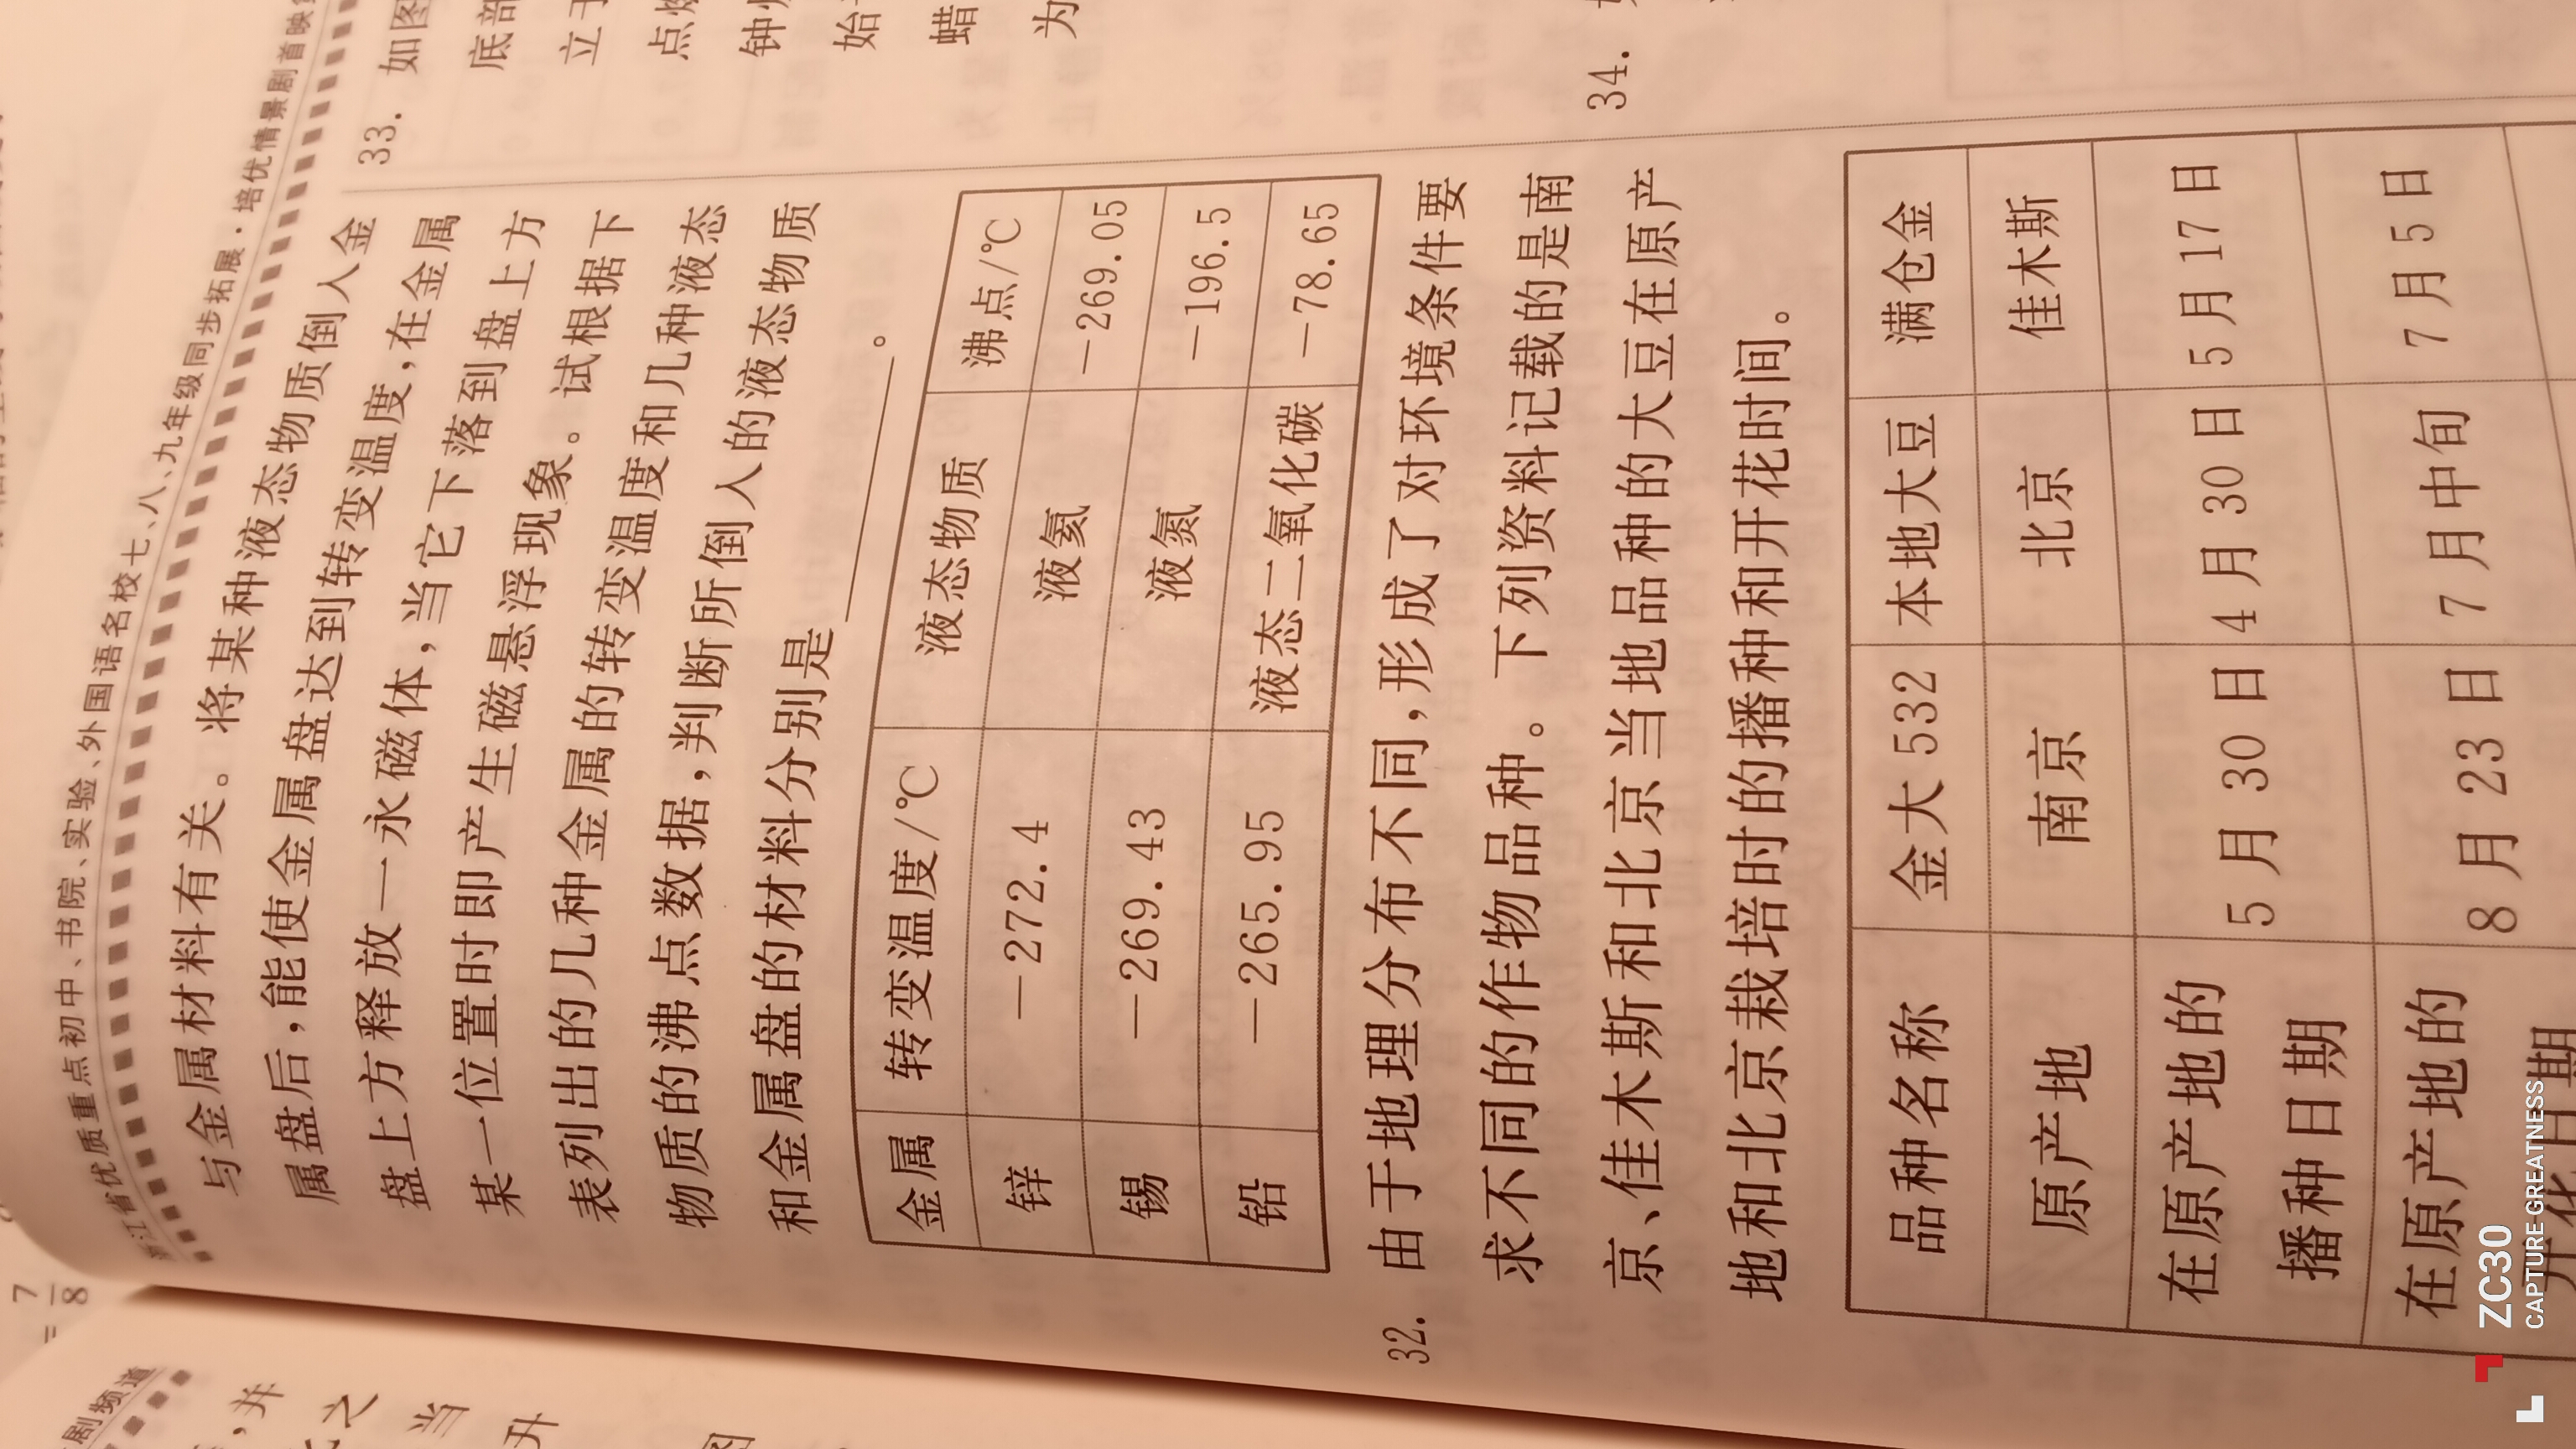 浙江省优质重点初中、书院、实验、外国语名校七、八、九年级同步拓展·培优情景剧首映
与金属材料有关。将某种液态物质倒入金
属盘后,能使金属盘达到转变温度,在金属
盘上方释放一永磁体,当它下落到盘上方
某一位置时即产生磁悬浮现象。试根据下
表列出的几种金属的转变温度和几种液态
物质的沸点数据,判断所倒入的液态物质
和金属盘的材料分别是________。
金属 转变温度/℃ 液态物质 沸点/℃
锌 -272.4 液氦 -269.05
锡 -269.43 液氮 -196.5
铅 -265.95 液态二氧化碳 -78.65
32. 由于地理分布不同,形成了对环境条件要
求不同的作物品种。下列资料记载的是南
京、佳木斯和北京当地品种的大豆在原产
地和北京栽培时的播种和开花时间。
品种名称 金大532 本地大豆 满仓金
原产地 南京 北京 佳木斯
在原产地的
播种日期 5月30日 4月30日 5月17日
在原产地的
开花日期 8月23日 7月中旬 7月5日
33. 如图
底部
立于
点
钟
始
蜡
为
34.
= 7/8
,并
之
当
升
剧频道
ZC30
CAPTURE GREATNESS